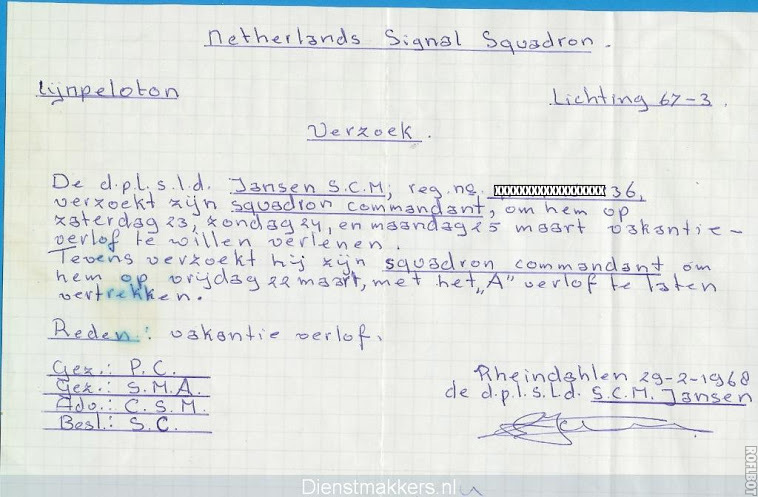 Netherlands Signal Squadron.
Lijnpeloton
Lichting 67-3.
Verzoek.
De d.p.l.s.l.d. Jansen S.C.M, reg.no. XXXXXXXXXXXXXXXXX 36,
verzoekt zijn squadron commandant, om hem op
zaterdag 23, zondag 24, en maandag 25 maart vakantie-
verlof te willen verlenen.
Tevens verzoekt hij zijn squadron commandant om
hem op vrijdag 22 maart, met het „A" verlof te laten
vertrekken.
Reden: vakantie verlof.
Gez.: P.C.
Gez.: S.M.A.
Adv.: C.S.M.
Besl.: S.C.
Rheindahlen 29-2-1968
de d.p.l.s.l.d. S.C.M. Jansen
Dienstmakkers.nl
ROFLBOT